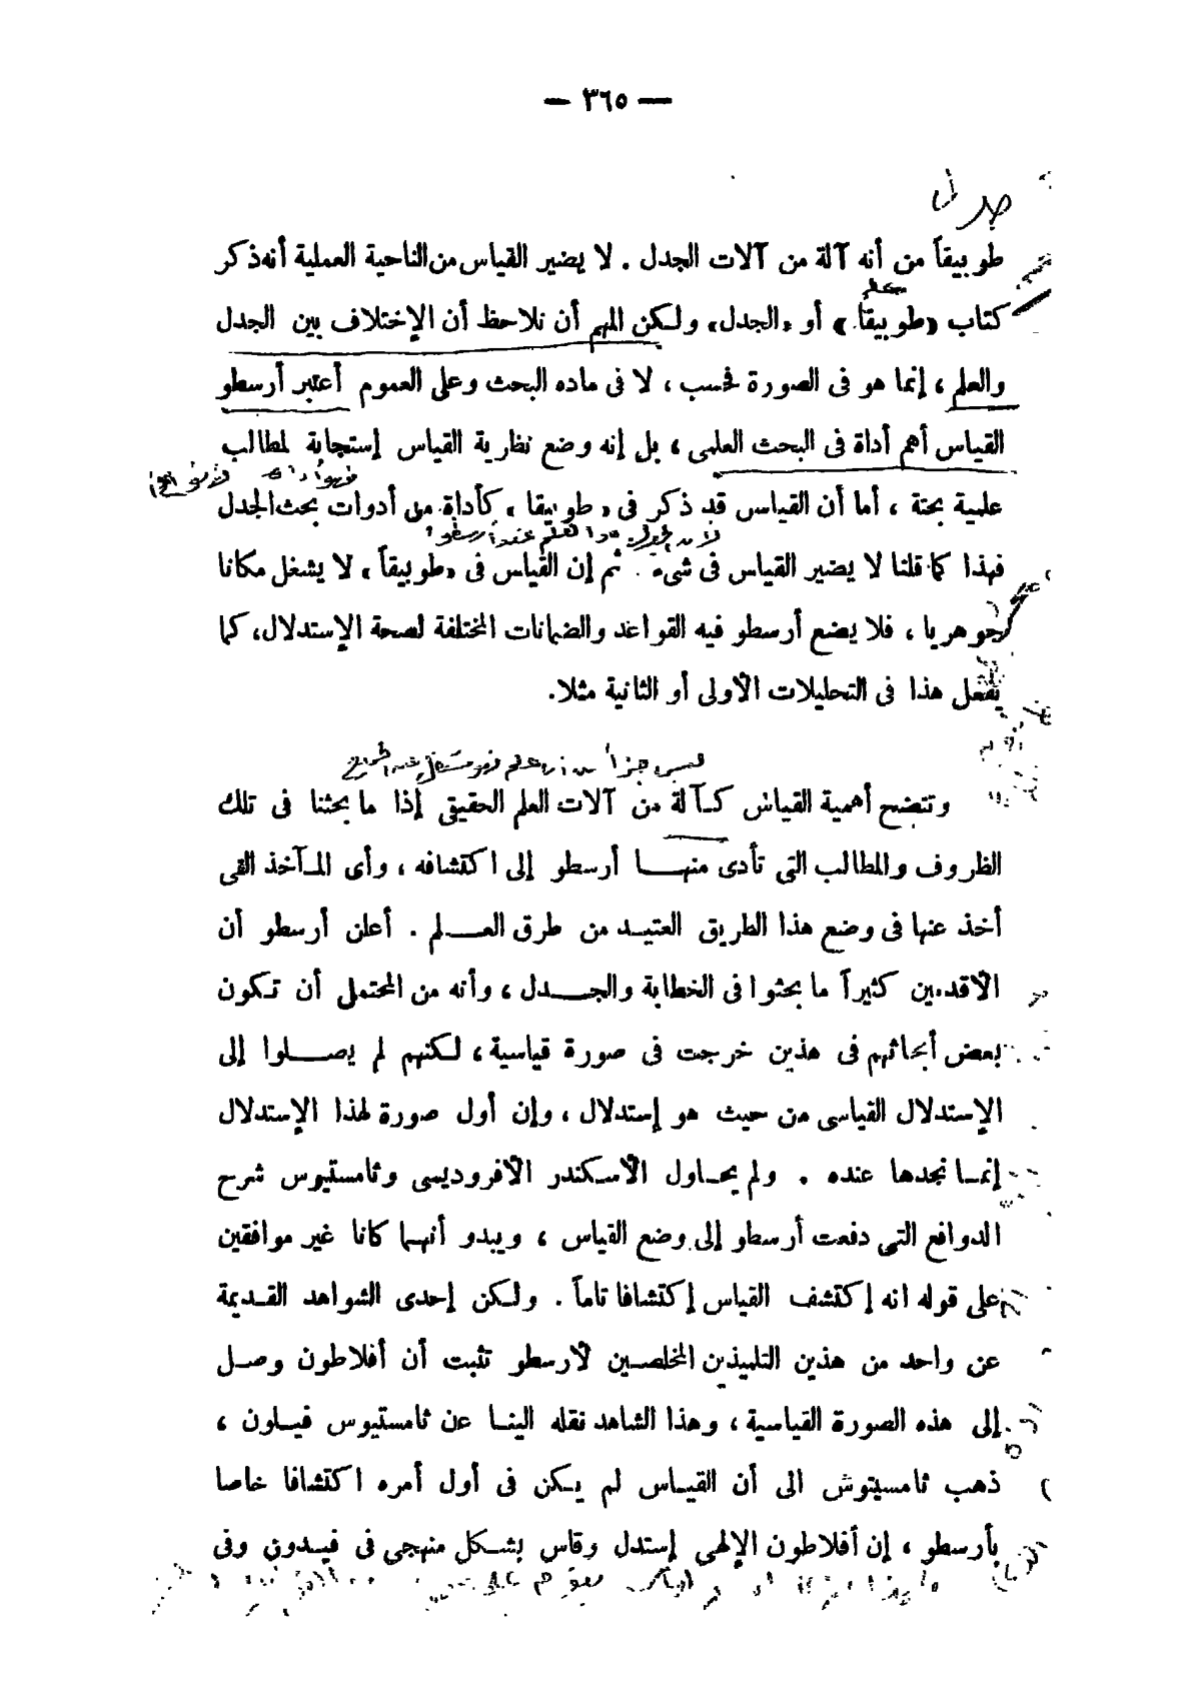 — ٣٦٥ —
طوبيقاً من أنه آلة من آلات الجدل . لا يضير القياس من الناحية العملية أنه ذكر
كتاب «طوبيقاً» أو «الجدل» ولكن المهم أن نلاحظ أن الإختلاف بين الجدل
والعلم ، إنما هو فى الصورة فحسب ، لا فى ماده البحث وعلى العموم أعتبر أرسطو
القياس أهم أداة فى البحث العلمى ، بل إنه وضع نظرية القياس إستجابة لمطالب
علمية بحتة ، أما أن القياس قد ذكر فى « طوبيقا » كأداة من أدوات بحث الجدل
فهذا كما قلنا لا يضير القياس فى شىء . ثم إن القياس فى «طوبيقاً» لا يشغل مكانا
جوهريا ، فلا يضع أرسطو فيه القواعد والضمانات المختلفة لصحة الإستدلال، كما
يفعل هذا فى التحليلات الأولى أو الثانية مثلا.
وتتضح أهمية القياس كآلة من آلات العلم الحقيقى إذا ما بحثنا فى تلك
الظروف والمطالب التى تأدى منهـا أرسطو إلى اكتشافه ، وأى المـآخذ القى
أخذ عنها فى وضع هذا الطريق العتيـد من طرق العـلم . أعلن أرسطو أن
الأقدمين كثيراً ما بحثوا فى الخطابة والجـدل ، وأنه من المحتمل أن تكون
بعض أبحاثهم فى هذين خرجت فى صورة قياسية ، لكنهم لم يصـلوا إلى
الإستدلال القياسى من حيث هو إستدلال ، وإن أول صورة لهذا الإستدلال
إنمـا نجدها عنده . ولم يحـاول الأسكندر الأفروديسى وثامستيوس شرح
الدوافع التى دفعت أرسطو إلى وضع القياس ، ويبدو أنهـما كانا غير موافقين
على قوله انه إكتشف القياس إكتشافا تاماً . ولكن إحدى الشواهد القديمة
عن واحد من هذين التلميذين المخلصـين لأرسطو تثبت أن أفلاطون وصـل
إلى هذه الصورة القياسية ، وهذا الشاهد نقله الينـا عن ثامستيوس فيـلون ،
ذهب ثامسيتوش الى أن القيـاس لم يـكن فى أول أمره اكتشافا خاصا
بأرسطو ، إن أفلاطون الإلهى إستدل وقاس بشـكل منهجى فى فيـدون وفى